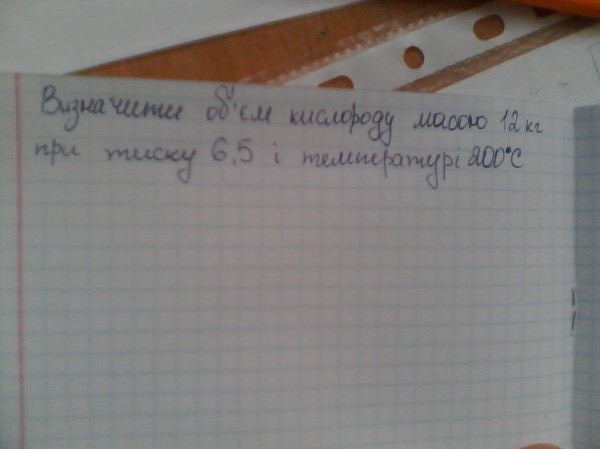 Визначити об'єм кислороду масою 12 кг
при тиску 6,5 і температурі 200°C